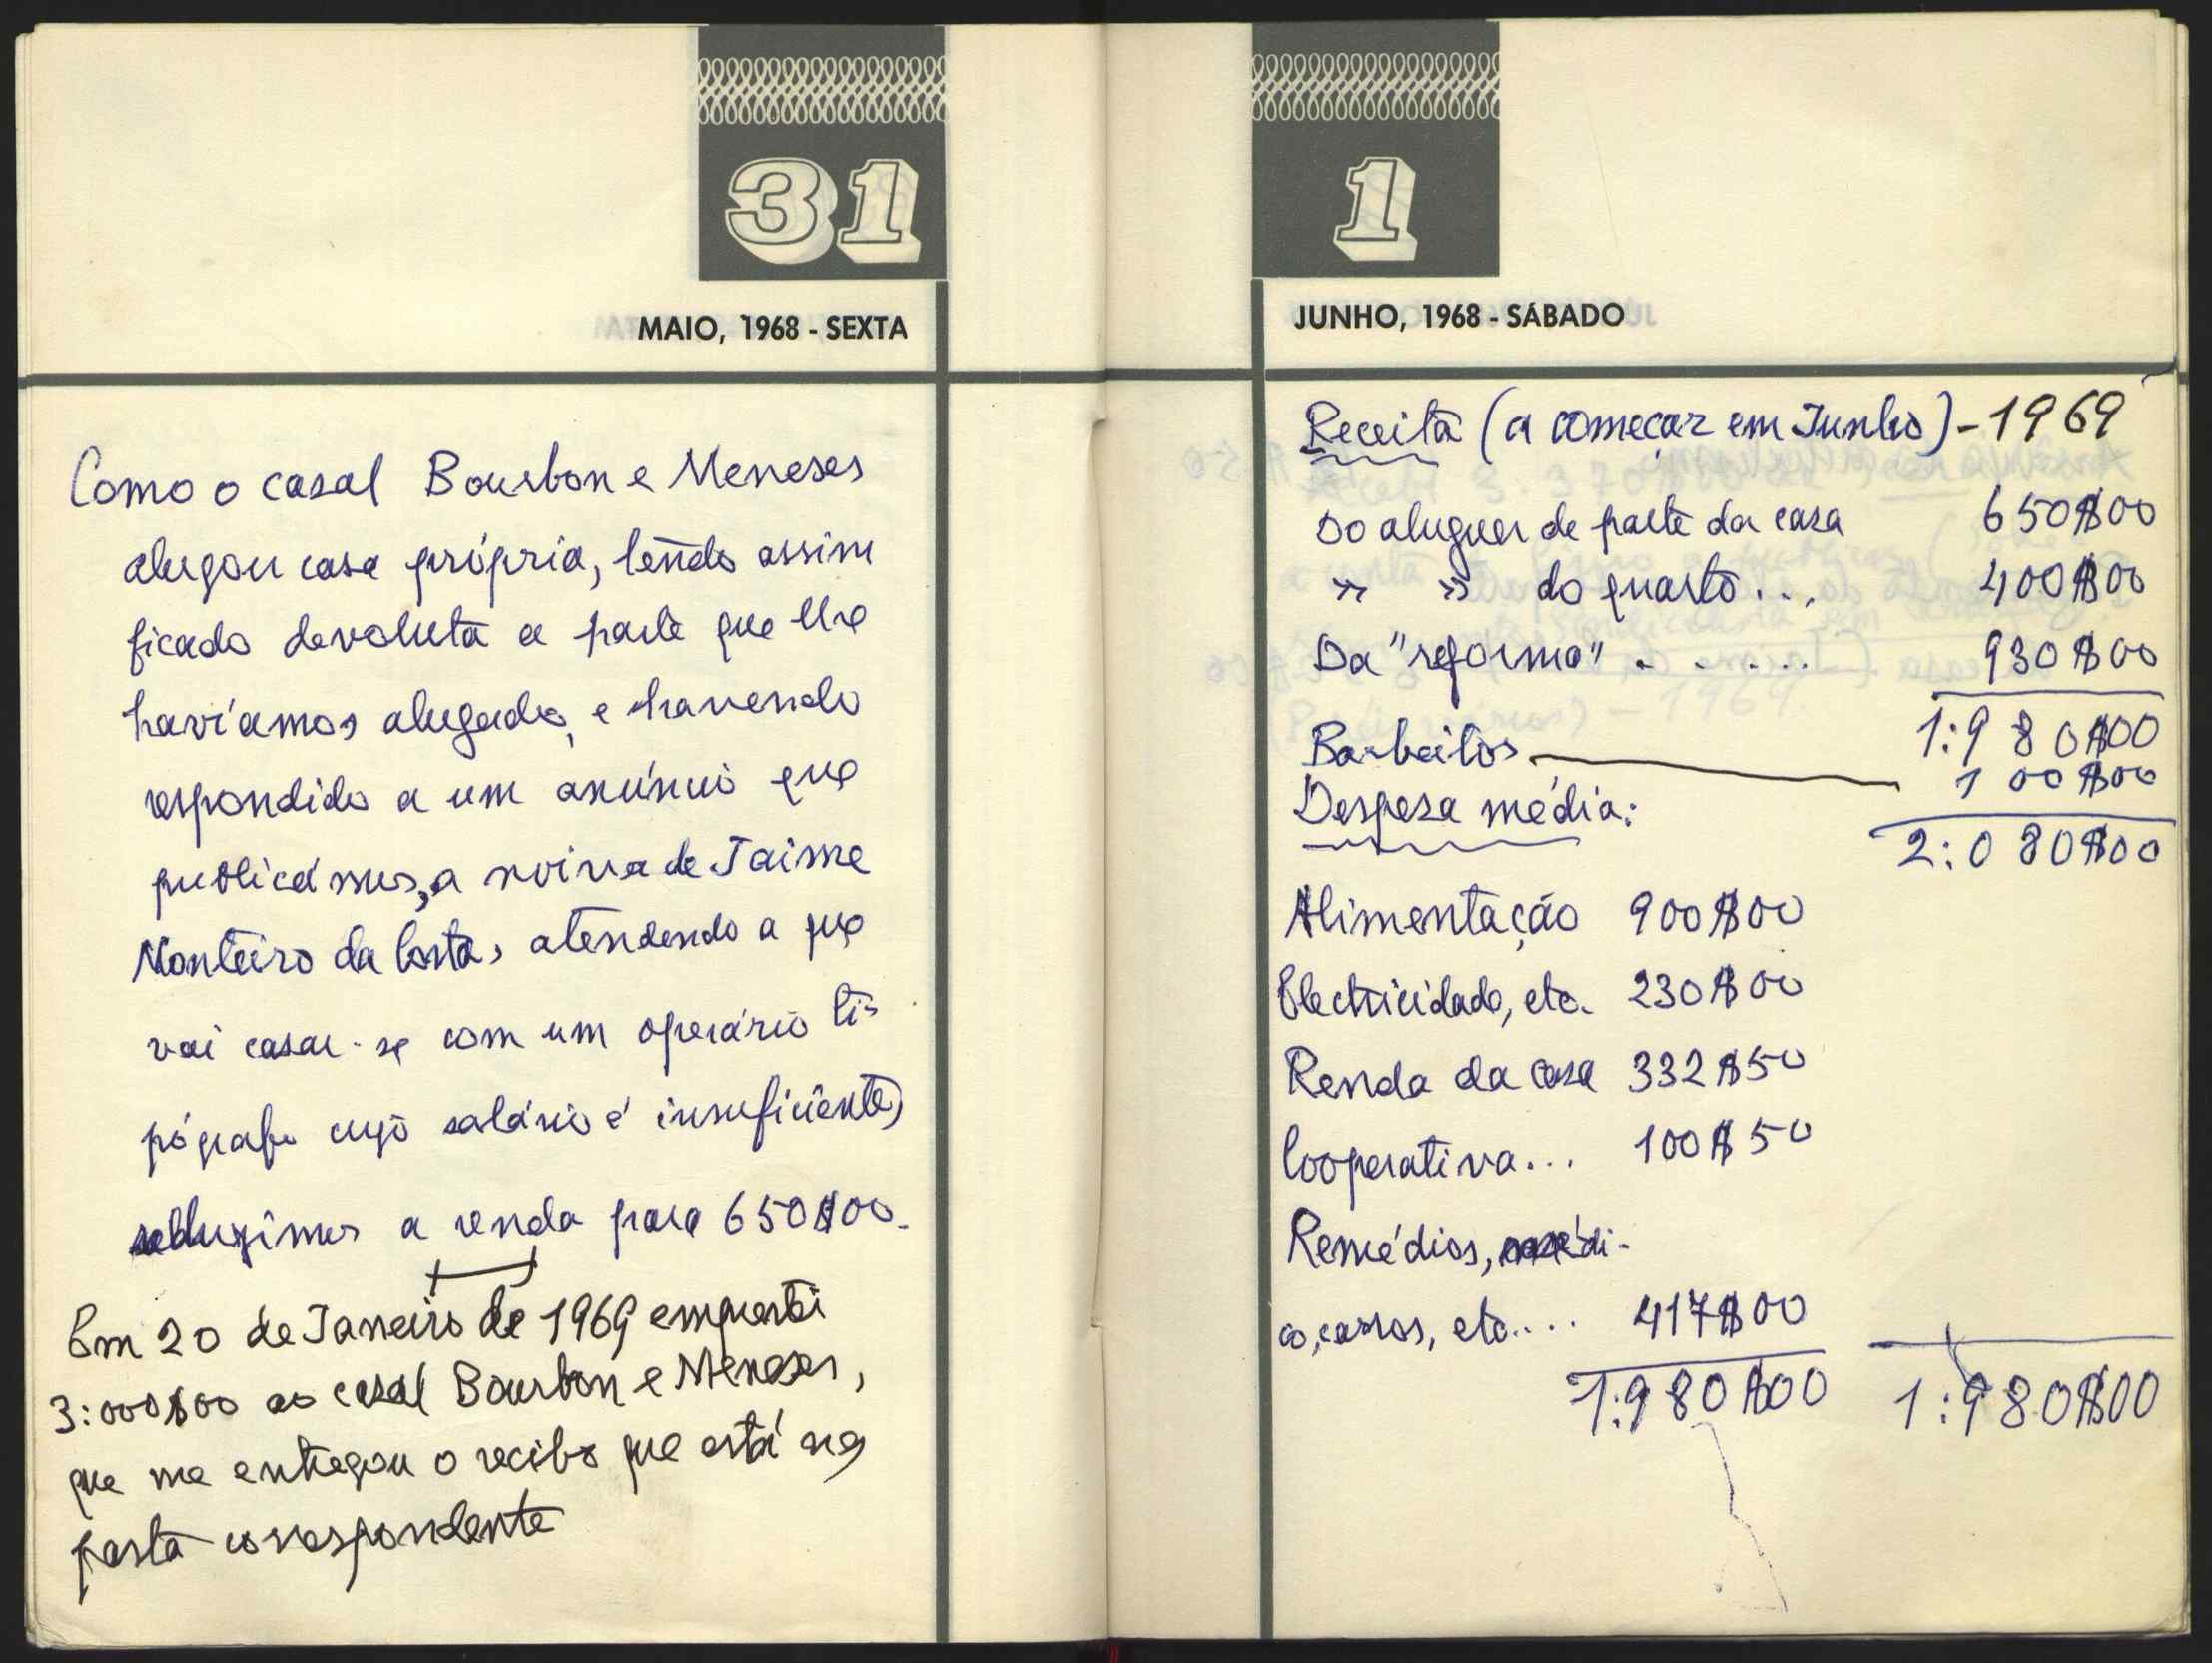 31
MAIO, 1968 - SEXTA
Como o casal Bourbon e Meneses
alugou casa própria, tendo assim
ficado devoluta a parte que lhe
havíamos alugado, e havendo
respondido a um anúncio que
publicámos, a noiva de Jaime
Monteiro da Costa, atendendo a que
vai casar-se com um operário ti-
pógrafo cujo salário é insuficiente,
reduzimos a renda para 650$00.
Em 20 de Janeiro de 1969 emprestei
3:000$00 ao casal Bourbon e Meneses,
que me entregou o recibo que está na
pasta correspondente
1
JUNHO, 1968 - SÁBADO
Receita (a começar em Junho) - 1969
Do aluguer de parte da casa 650$00
" " do quarto... 400$00
Da "reforma" . . . . . . 930$00
1:980$00
Barbeitos 100$00
Despesa média:
2:080$00
Alimentação 900$00
Electricidade, etc. 230$00
Renda da casa 332$50
Cooperativa... 100$50
Remédios, médi-
co, carros, etc.... 417$00
1:980$00 1:980$00